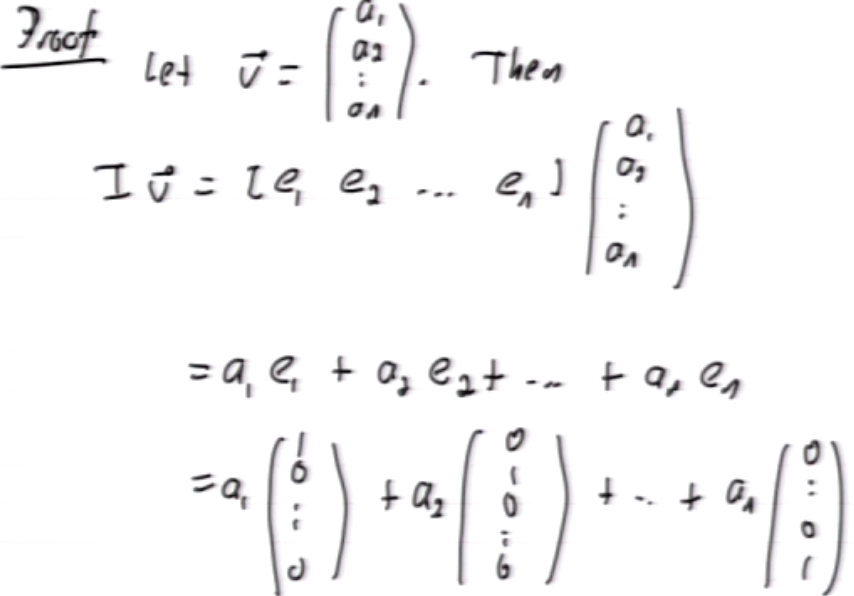 Proof Let v⃗ = (a₁ a₂ ⋮ aₙ). Then
I v⃗ = [e₁ e₂ ... eₙ] (a₁ a₂ ⋮ aₙ)
= a₁ e₁ + a₂ e₂ + ... + aₙ eₙ
= a₁ (1 0 ⋮ 0) + a₂ (0 1 0 ⋮ 0) + ... + aₙ (0 ⋮ 0 1)